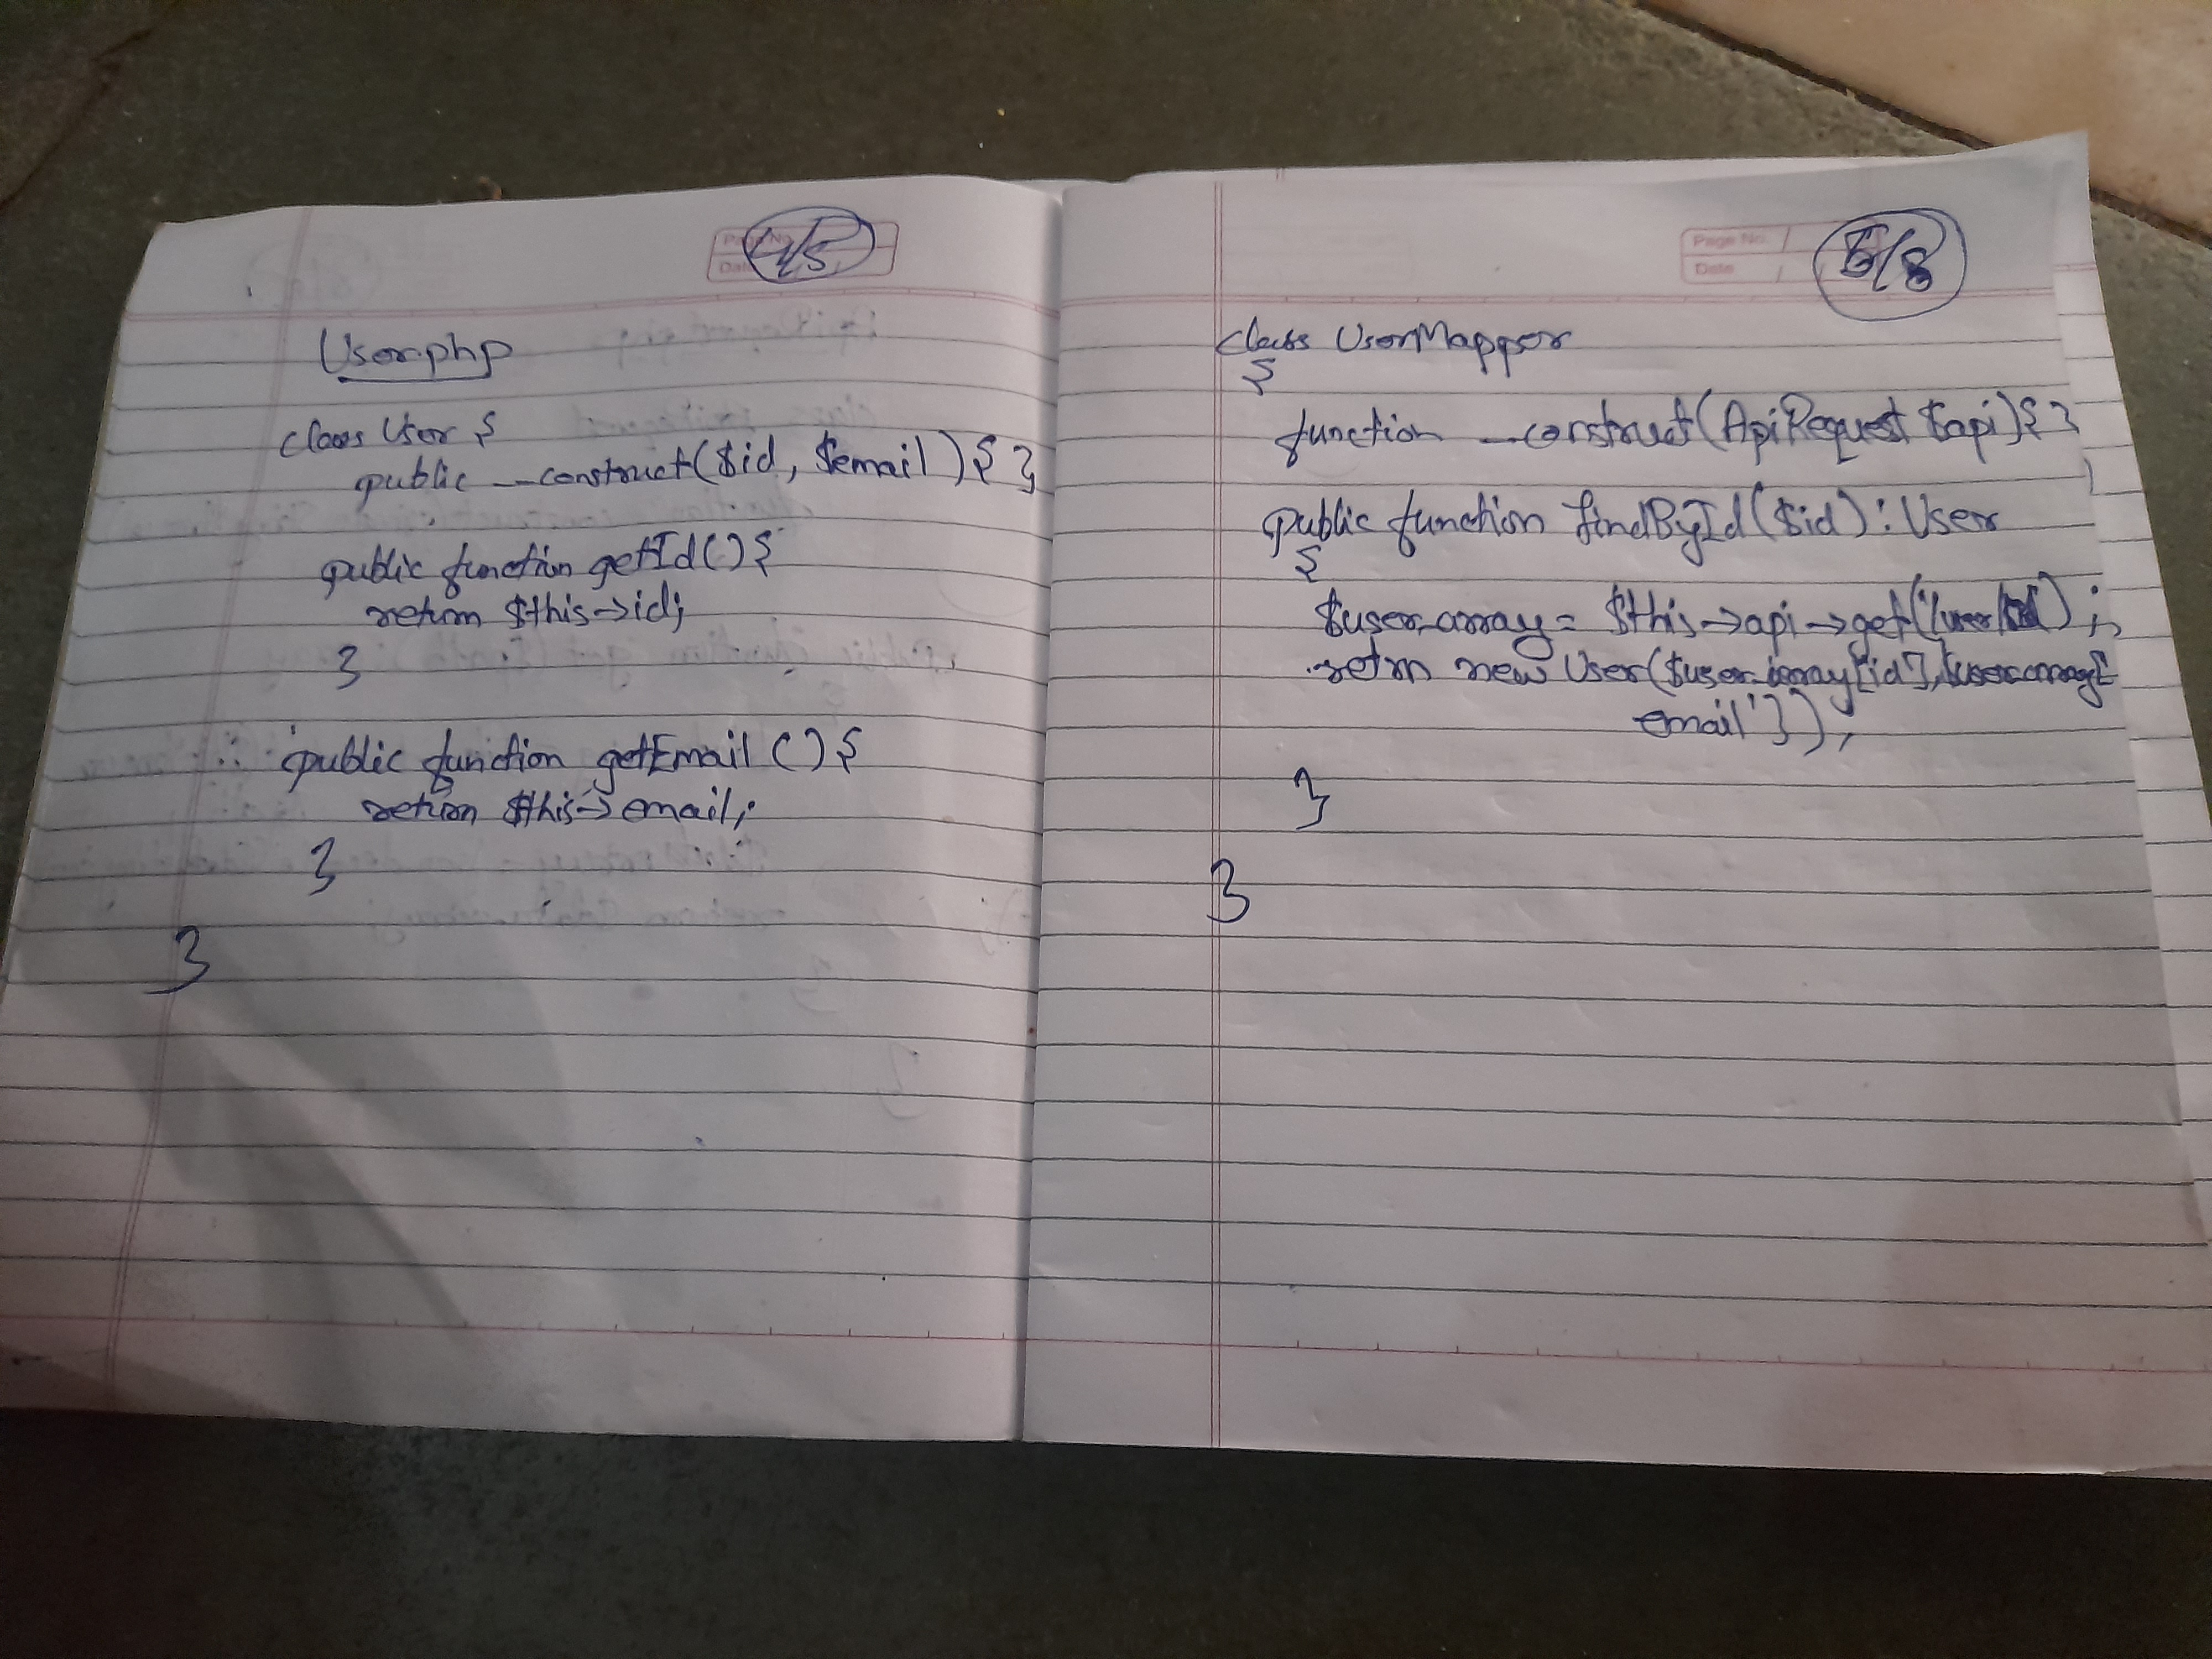 Page No.
Date
4/8
User.php
class User {
public __construct($id, $email) { }
public function getId() {
return $this->id;
}
public function getEmail() {
return $this->email;
}
}
Page No.
Date
5/8
class UserMapper
{
function __construct(ApiRequest $api) { }
public function findById($id) : User
{
$user_array = $this->api->get('/user/id');
return new User($user_array['id'], $user_array['
email']);
}
}